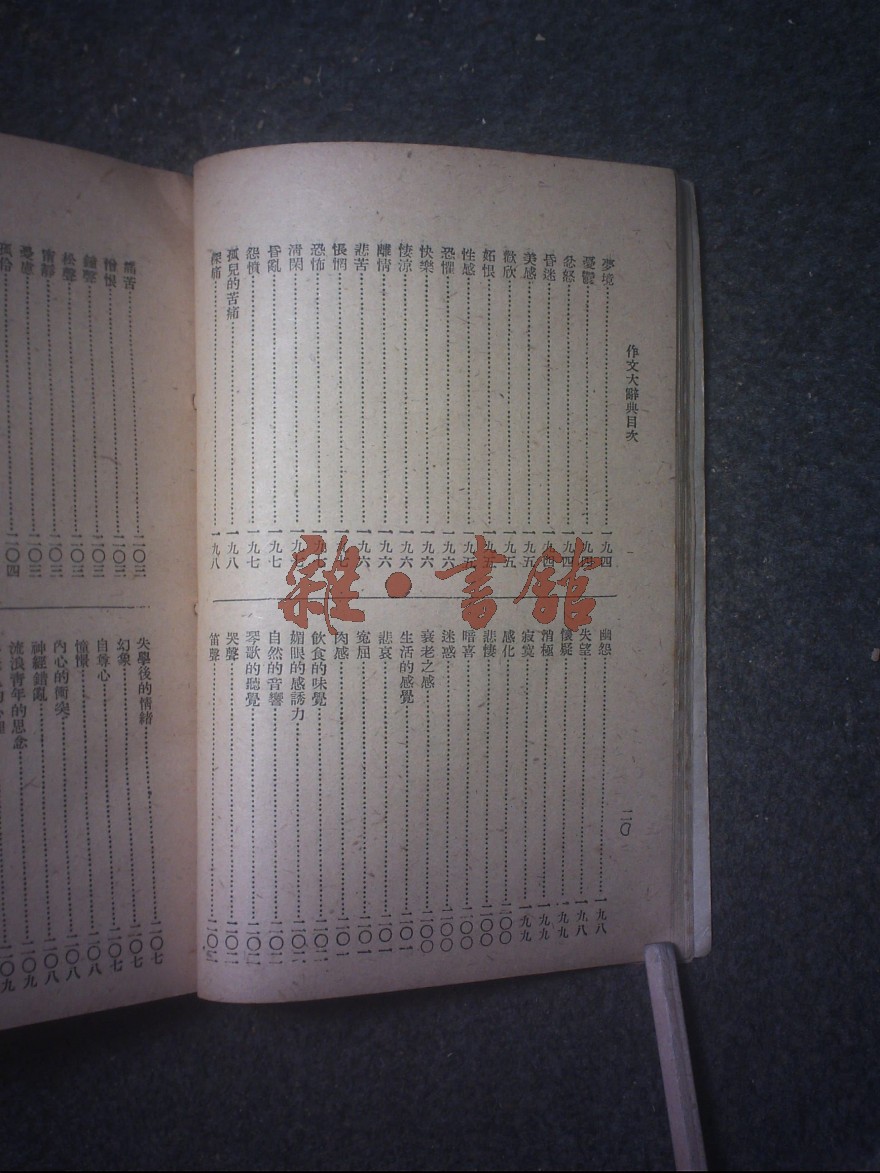 作文大辭典目次
二〇
夢境 一九四
憂鬱 一九四
忿怒 一九四
昏迷 一九四
美感 一九五
歡欣 一九五
妬恨 一九五
性感 一九五
恐懼 一九六
快樂 一九六
悽涼 一九六
離情 一九六
悲苦 一九六
悵惘 一九七
恐怖 一九七
清閑 一九七
昏亂 一九七
怨憤 一九七
孤兒的苦痛 一九八
一九八
幽怨 一九八
失望 一九八
懷疑 一九九
消極 一九九
寂寞 一九九
感化 二〇〇
悲悽 二〇〇
喜 二〇〇
迷惑 二〇〇
衰老之感 二〇〇
生活的感覺 二〇一
悲哀 二〇一
冤屈 二〇一
肉感 二〇一
飲食的味覺 二〇二
媚眼的感誘力 二〇二
自然的音響 二〇二
琴歌的聽覺 二〇二
哭聲 二〇二
笛聲 二〇二
痛苦 二〇三
憎恨 二〇三
鐘聲 二〇三
松聲 二〇三
二〇三
憂慮 二〇三
二〇四
失學後的情緒 二〇七
幻象 二〇七
自尊心 二〇七
憧憬 二〇八
內心的衝突 二〇八
神經錯亂 二〇八
流浪青年的思念 二〇九
雜·書館